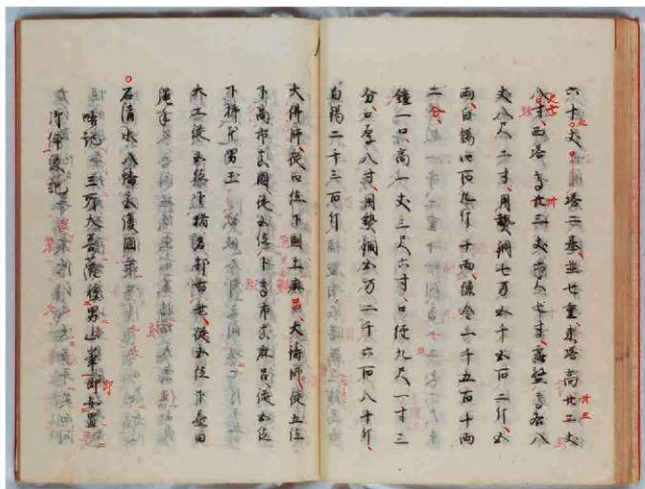 六十丈、塔二基、並七重、東塔高廿三丈
八寸、西塔高廿三丈六尺七寸、露盤高各八
丈八尺二寸、用熟銅七万五千五百二斤、五
両、白鑞四百九斤十両、練金一千五百十両
二分、
鐘一口、高一丈三尺六寸、口径九尺一寸三
分、口厚八寸、用熟銅五万二千六百八十斤、
白鑞二千三百斤
大佛師、従四位下国公麻呂、大鋳師、従五位
下高市真国、従五位下高市真麻呂、従五位
下柿本男玉
大工従五位下猪名部百世、従五位下益田
縄手
石清水八幡宮護国寺
略記 三所大菩薩移男山峯即安置